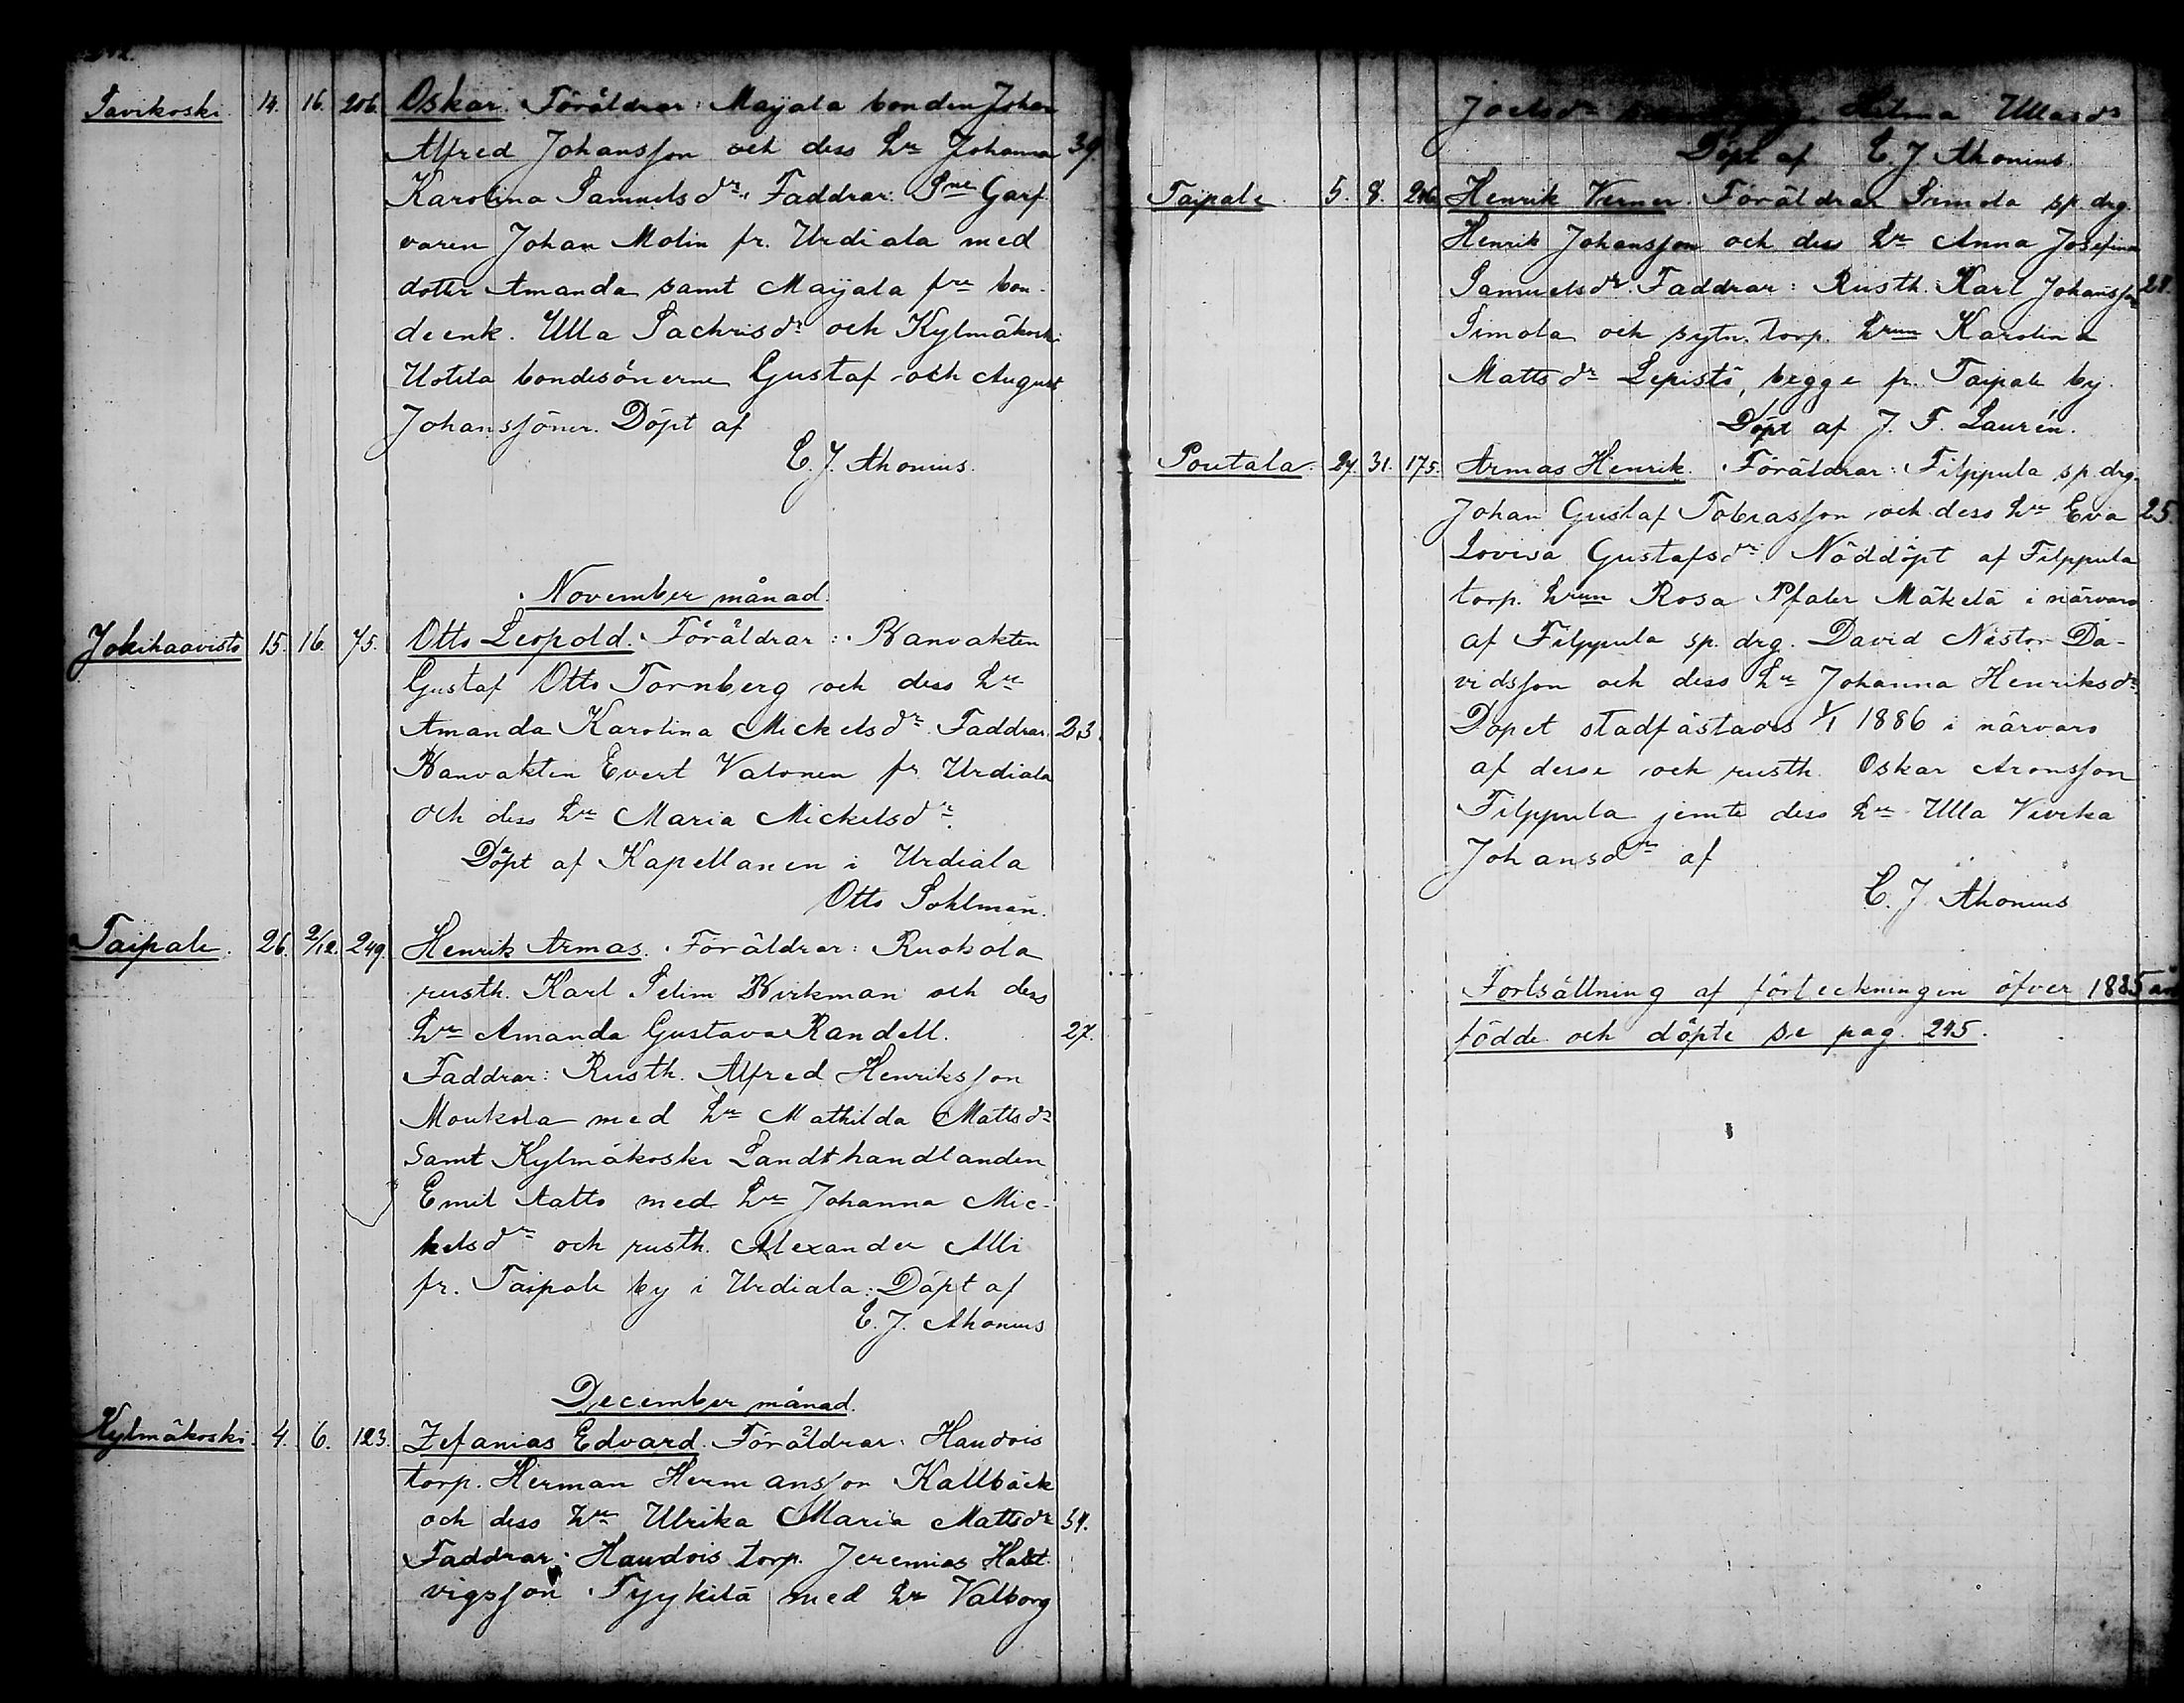 Savikoski. 14. 16. 206. Oskar. Föräldrar: Mäyälä bonden Johan
Alfred Johansson och dess Hu Johanna 39.
Karolina Samuelsdr. Faddrar: Sne Garf
varen Johan Molin fr. Urdiala med
dotter Amanda samt Mäyälä fre bon-
deenk. Ulla Sachrisdr och Kylmäkoski
Uotila bondesönerne Gustaf och August
Johanssöner. Döpt af
E. J. Ahonius.
November månad.
Jokihaavisto 15. 16. 75. Otto Leopold. Föräldrar: Banvakten
Gustaf Otto Tornberg och dess Hu
Amanda Karolina Mickelsdr. Faddrar. 23.
Banvakten Evert Valonen fr Urdiala
och dess Hu Maria Mickelsdr.
Döpt af Kapellanen i Urdiala
Otto Sohlman.
Taipale. 26. 2/12. 249. Henrik Armas. Föräldrar: Ruokola
rusth. Karl Selim Birkman och dess
Hu Amanda Gustava Randell. 27.
Faddrar: Rusth. Alfred Henriksson
Moukola med Hu Mathilda Mattsdr
samt Kylmäkoski Landthandlanden
Emil Aalto med Hu Johanna Mic-
kelsdr och rusth. Alexander Alli
fr. Taipale by i Urdiala. Döpt af
E. J. Ahonius
December månad.
Kylmäkoski. 4. 6. 123. Zefanias Edvard. Föräldrar: Haudois
torp. Herman Hermansson Kallbäck
och dess Hu Ulrika Maria Mattsdr 34.
Faddrar: Haudois torp. Jeremias Hart
vigsson Tyykilä med Hu Valborg
Joelsdr Hilma Ullasdr
Döpt af E. J Ahonius.
Taipale. 5. 8. 246. Henrik Verner. Föräldrar Simola sp. drg.
Henrik Johansson och dess Hu Anna Josefina
Samuelsdr. Faddrar: Rusth. Karl Johansson 28.
Simola och sytn. torp. Hrun Karolina
Mattsdr Lepistö, begge fr. Taipale by.
Döpt af J. F. Laurén.
Poutala. 27. 31. 175. Armas Henrik. Föräldrar: Filppula sp. drg.
Johan Gustaf Tobiasson och dess Hu Eva 25.
Lovisa Gustafsdr. Nöddöpt af Filppula
torp. Hrun Rosa Pfaler Mäkelä i närvaro
af Filppula sp. drg. David Nestor Da-
vidsson och dess Hu Johanna Henriksdr.
Dopet stadfästades 1/1 1886 i närvaro
af desse och rusth. Oskar Aronsson
Filppula jemte dess Hu Ulla Vivika
Johansdr af
E. J. Ahonius
Fortsättning af förteckningen öfver 1885 år
födde och döpte se pag. 245.